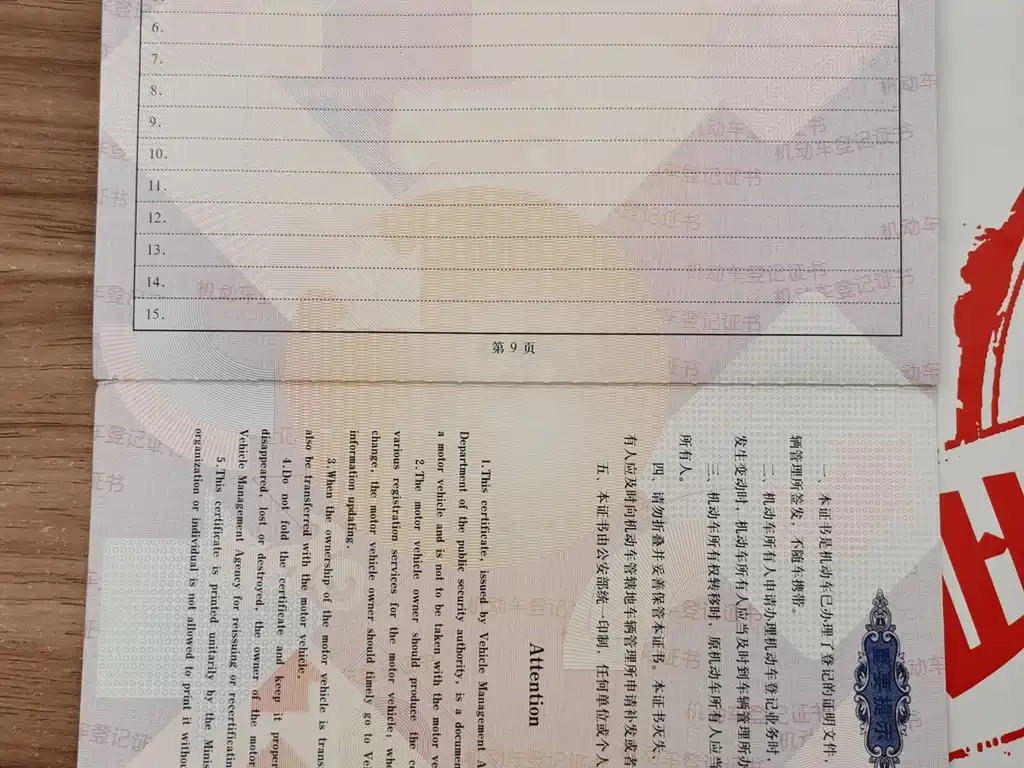 6.
7.
8.
9.
10.
11.
12.
13.
14.
15.
第 9 页
重要提示
一、本证书是机动车已办理了登记的证明文件，
辆管理所签发，不随车携带。
二、机动车所有人申请办理机动车登记业务时，
发生变动时，机动车所有人应当及时到车辆管理所办
三、机动车所有权转移时，原机动车所有人应当
所有人。
四、请勿折叠并妥善保管本证书。本证书灭失、
有人应及时向机动车管辖地车辆管理所申请补发或者
五、本证书由公安部统一印制，任何单位或个人
Attention
1. This certificate, issued by Vehicle Management A
Department of the public security authority, is a documen
a motor vehicle and is not to be taken with the motor ve
2. The motor vehicle owner should produce the ce
various registration services for the motor vehicle; whe
change, the motor vehicle owner should timely go to Veh
information updating.
3. When the ownership of the motor vehicle is trans
also be transferred with the motor vehicle.
4. Do not fold the certificate and keep it proper
disappeared, lost or destroyed, the owner of the motor
Vehicle Management Agency for reissuing or recertificatin
5. This certificate is printed unitarily by the Minis
organization or individual is not allowed to print it withou
机动车登记证书